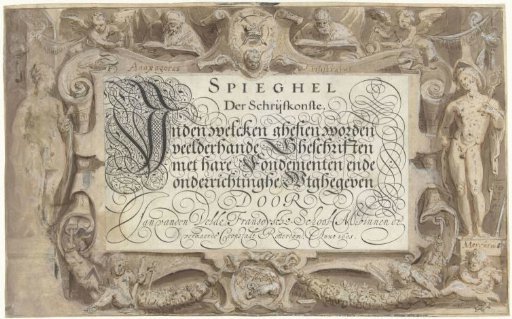 Anaxagoras
Pisistratus
SPIEGHEL
Der Schrijfkonste,
Inden welcken ghesien worden
veelderhande Gheschriften
met hare Fondementen ende
onderrichtinghe. Wtghegeven
DOOR
Ian vanden Velde Fransoysche School M binnen de
vermaerde Rotterdam Anno 1605.
Mercurius